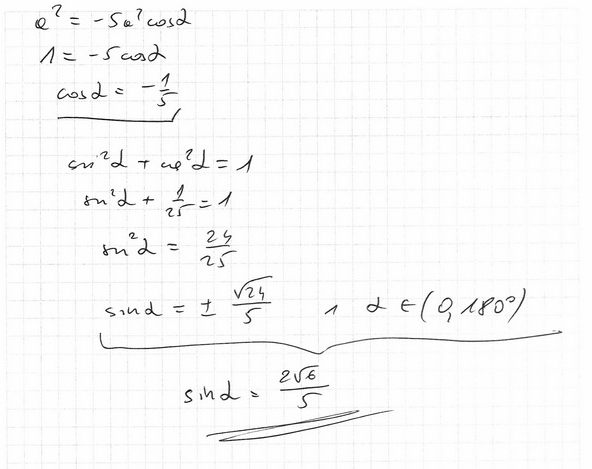 a² = -5a² cosα
1 = -5cosα
cosα = -1/5
sin²α + cos²α = 1
sin²α + 1/25 = 1
sin²α = 24/25
sinα = ± √24/5 ∧ α ∈ (0, 180°)
sinα = 2√6/5